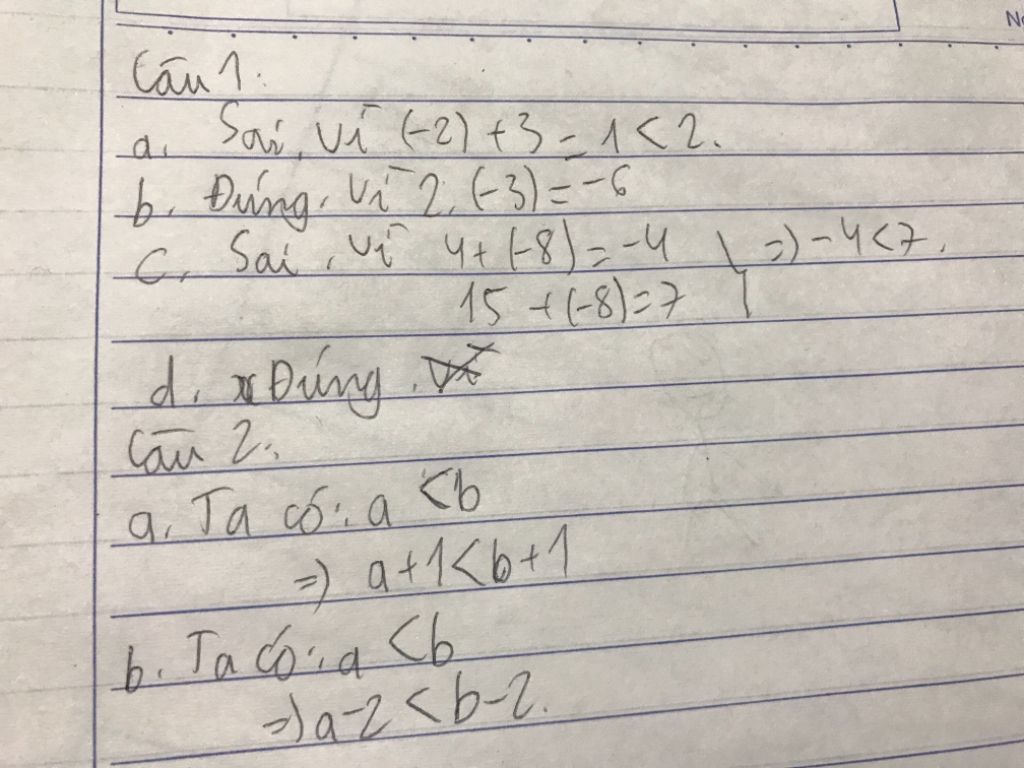 Câu 1.
a. Sai, vì (-2) + 3 = 1 < 2.
b. Đúng, vì 2.(-3) = -6
c. Sai, vì 4 + (-8) = -4 } => -4 < 7.
15 + (-8) = 7
d. Đúng.
Câu 2:
a. Ta có: a < b
=> a + 1 < b + 1
b. Ta có: a < b
=> a - 2 < b - 2.